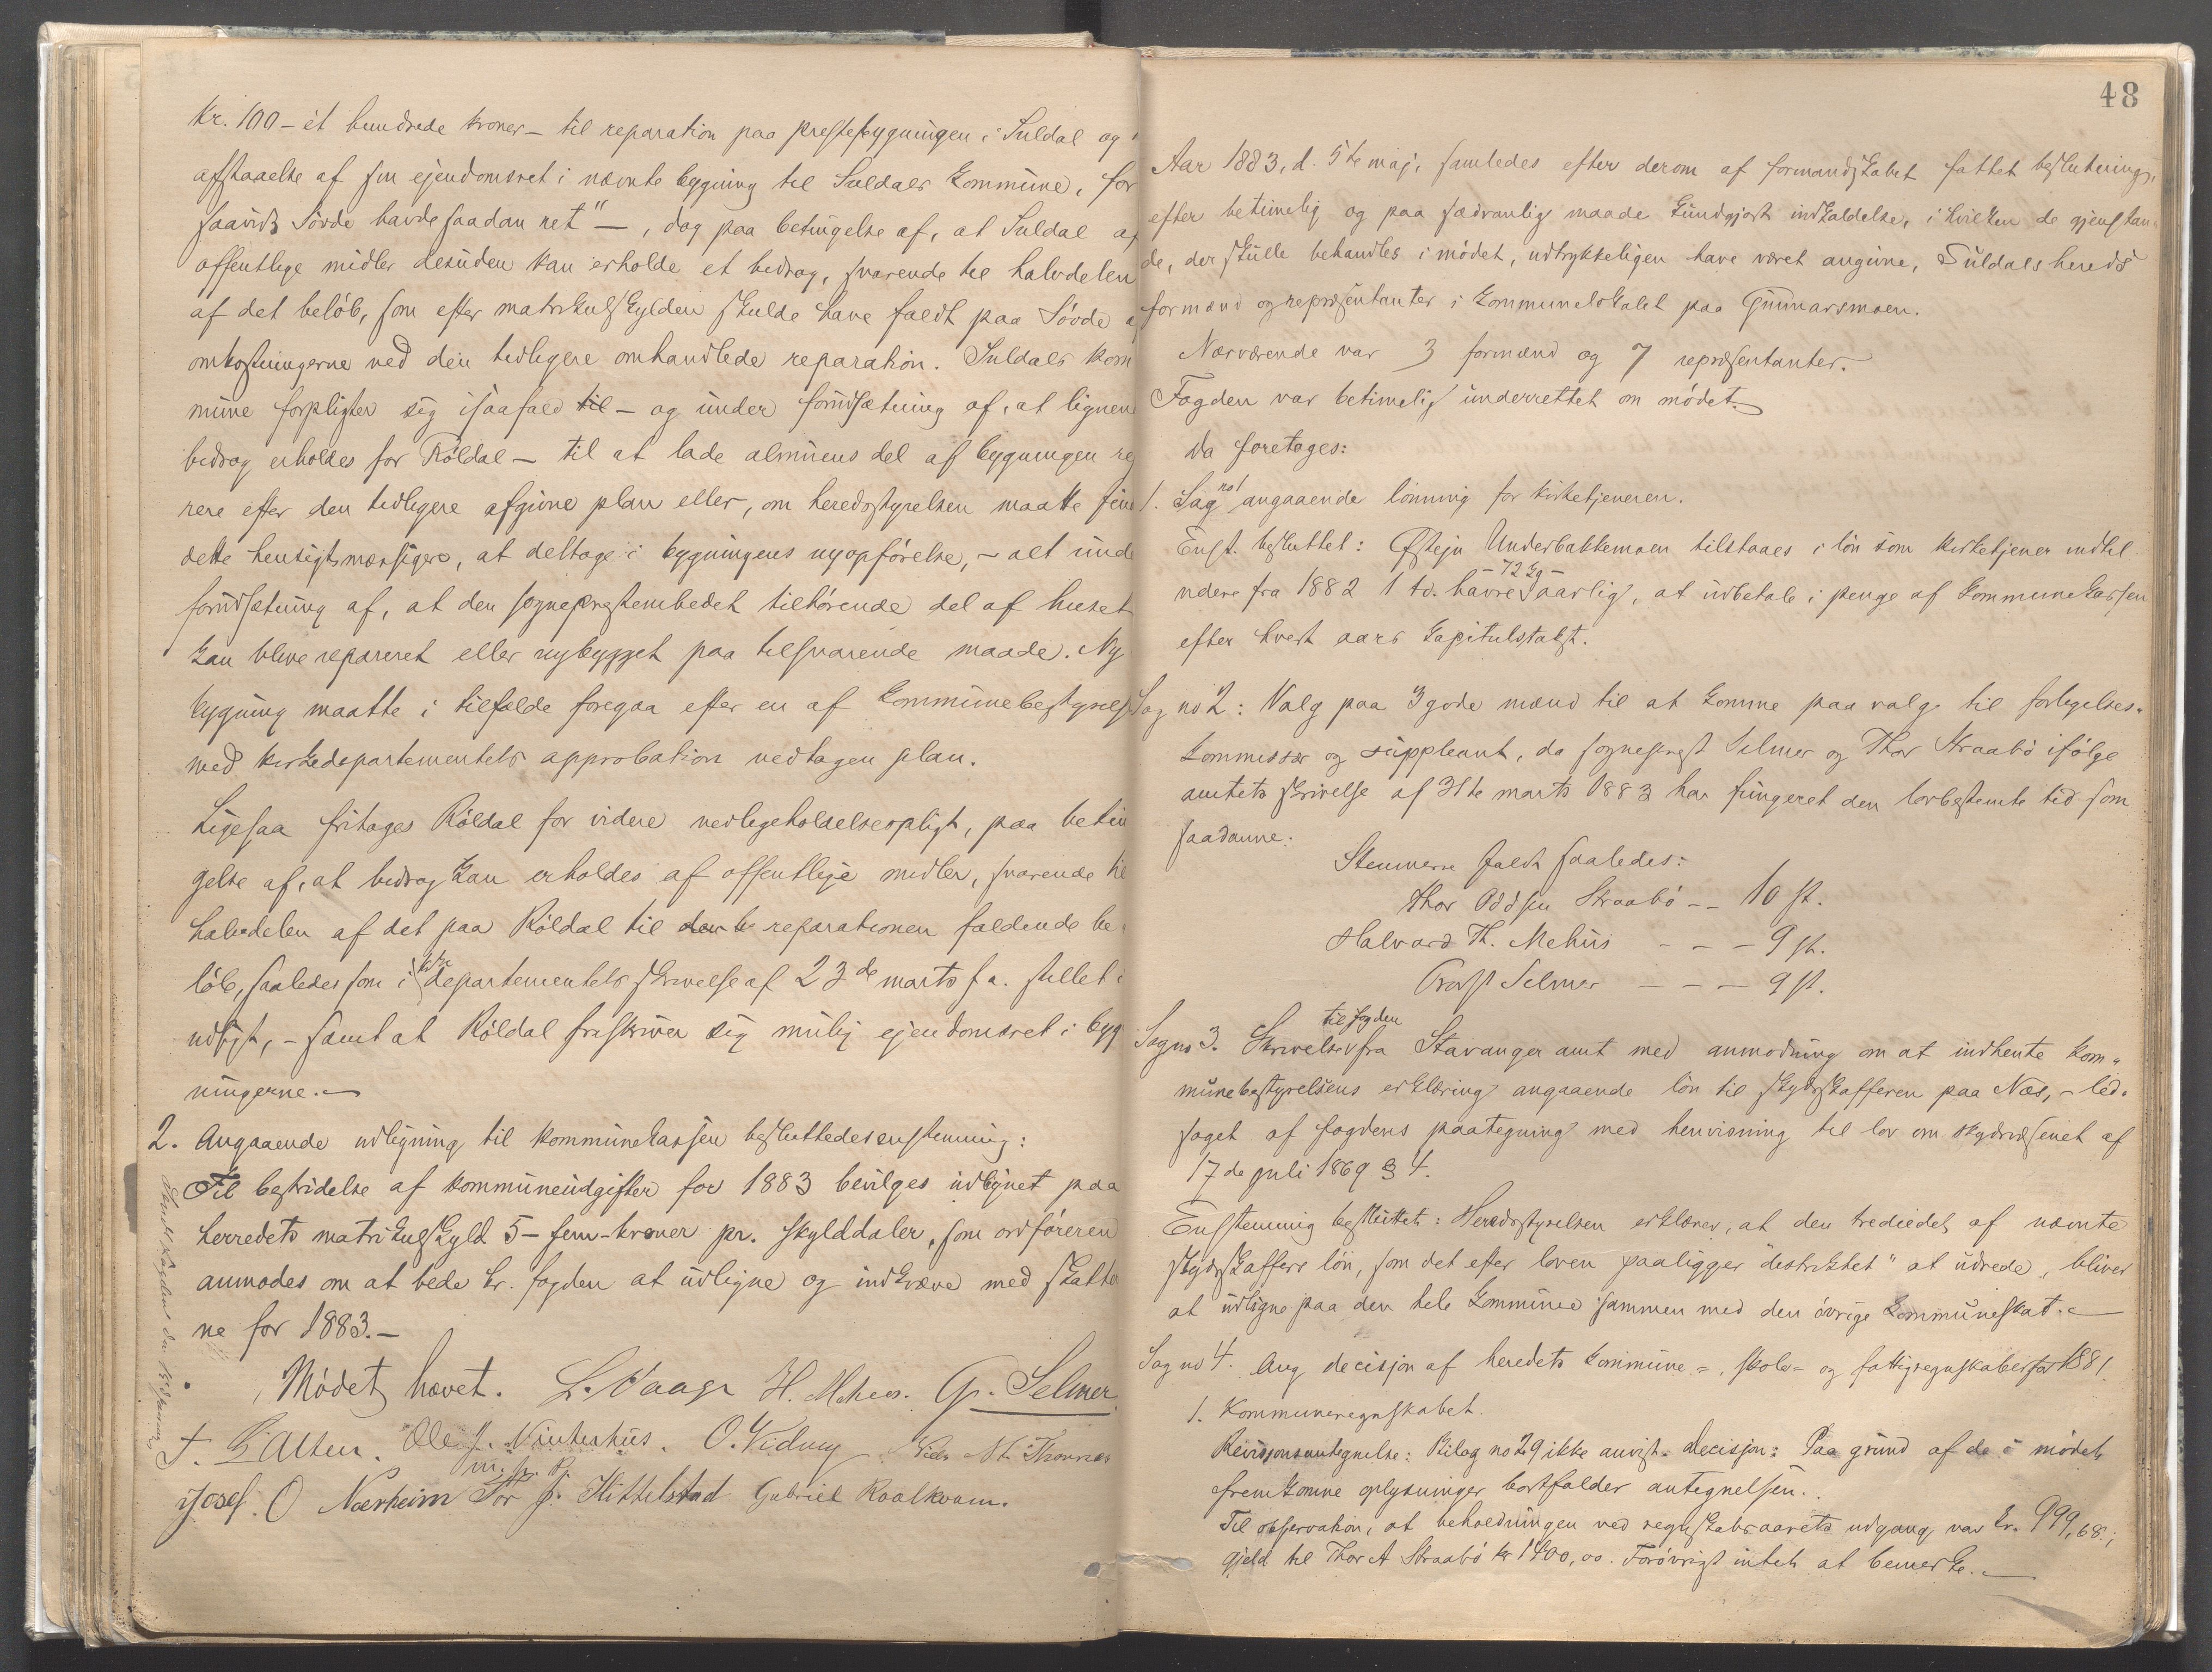 kr. 100 – ét hundrede kroner – til reparation paa prestebygningen i Suldal og
afstaaelse af sin ejendomsret i nævnte bygning til Suldals kommune, for
saavidt Sövde havde saadan ret" –, dog paa betingelse af, at Suldal af
offentlige midler desuden kan erholde et bidrag, svarende til halvdelen
af det belöb, som efter matrikulskylden skulde have faldt paa Sövde af
omkostningerne ved den tidligere omhandlede reparation. Suldals kom
mune forpligter sig isaafald til – og under forudsætning af, at lignen
bidrag erholdes for Röldal – til at lade almuens del af bygningen re
rere efter den tidligere afgivne plan eller, om heredsstyrelsen maatte fin
dette hensigtsmæssigere, at deltage i bygningens nyopförelse, – alt unde
forudsætning af, at den sogneprestembedet tilhörende del af huset
kan blive repareret eller nybygget paa tilsvarende maade. Ny
bygning maatte i tilfælde foregaa efter en af kommunebestyrels
med kirkedepartementets approbation vedtagen plan.
Ligesaa fritages Röldal for videre vedligeholdelsespligt, paa betin
gelse af, at bidrag kan erholdes af offentlige midler, svarende til
halvdelen af det paa Röldal til reparationen faldende be
löb, saaledes som i kirke departementets skrivelse af 23de marts f. a. stillet i
udsigt, – samt at Röldal fraskriver sig mulig ejendomsret i byg
ningerne. –
2. Angaaende udligning til kommunekassen besluttedes enstemmig:
Til bestridelse af kommuneudgifter for 1883 bevilges udlignet paa
herredets matrikulskyld 5 – fem – kroner pr. skylddaler, som ordföreren
anmodes om at bede hr. fogden at udligne og indkræve med skatte
ne for 1883. –
Mödet hævet. L. Vaage H. Mehus. G. Selmer
T. Ole J. Vinterhus. O. Vidmy Niels M.
m. p. P.
Josef. O Nærheim Tor J. Hittelstad Gabriel Roalkvam.
48
Aar 1883, d. 5te maj, samledes efter derom af formandskabet fattet beslutning,
efter betimelig og paa sædvanlig maade kundgjort indkaldelse, i hvilken de gjenstan
de, der skulle behandles i mödet, udtrykkeligen have været angivne, Suldals hereds
formænd og repræsentanter i kommunelokalet paa Gunnarsmoen.
Nærværende var 3 formænd og 7 repræsentanter.
Fogden var betimelig underrettet om mödet.
Da foretoges:
1. Sag no 1 angaaende lönning for kirketjeneren.
Enst. besluttet: Östejn Underbakkemoen tilstaaes i lön som kirketjener indtil
videre fra 1882 1 td. havre – 72 kg – aarlig, at udbetale i penge af kommunekassen
efter hvert aars kapitulstakst.
Sag no 2: Valg paa 3 gode mænd til at komme paa valg til forligelses-
kommissær og suppleant, da sogneprest Selmer og Thor Straabö ifölge
amtets skrivelse af 31te marts 1883 har fungeret den lovbestemte tid som
saadanne.
Stemmerne faldt saaledes:
Thor Oddsen Straabö – – 10 st.
Halvard Th. Mehus – – – 9 st.
Provst Selmer – – – 9 st.
Sag no 3. Skrivelse til fogden fra Stavanger amt med anmodning om at indhente kom-
munebestyrelsens erklæring angaaende lön til skydsskafferen paa Næs, – led-
saget af fogdens paategning med henvisning til lov om skydsvæsenet af
17de juli 1869 § 4.
Enstemmig besluttet: Heredsstyrelsen erklærer, at den trediedel af nævnte
skydsskaffers lön, som det efter loven paaligger "distriktet" at udrede, bliver
at udligne paa den hele kommune sammen med den övrige kommuneskat. –
Sag no 4. Ang decisjon af heredets kommune-, skole- og fattigregnskaber for 1881.
1. Kommuneregnskabet.
Revisjonsantegnelse: Bilag no 29 ikke anvist. Decisjon: Paa grund af de i mödet
fremkomne oplysninger bortfalder antegnelsen.
Til observation, at beholdningen ved regnskabsaarets udgang var kr. 999,68.;
gjeld til Thor A Straabö kr 1400,00. Forövrigt intet at bemerke. –